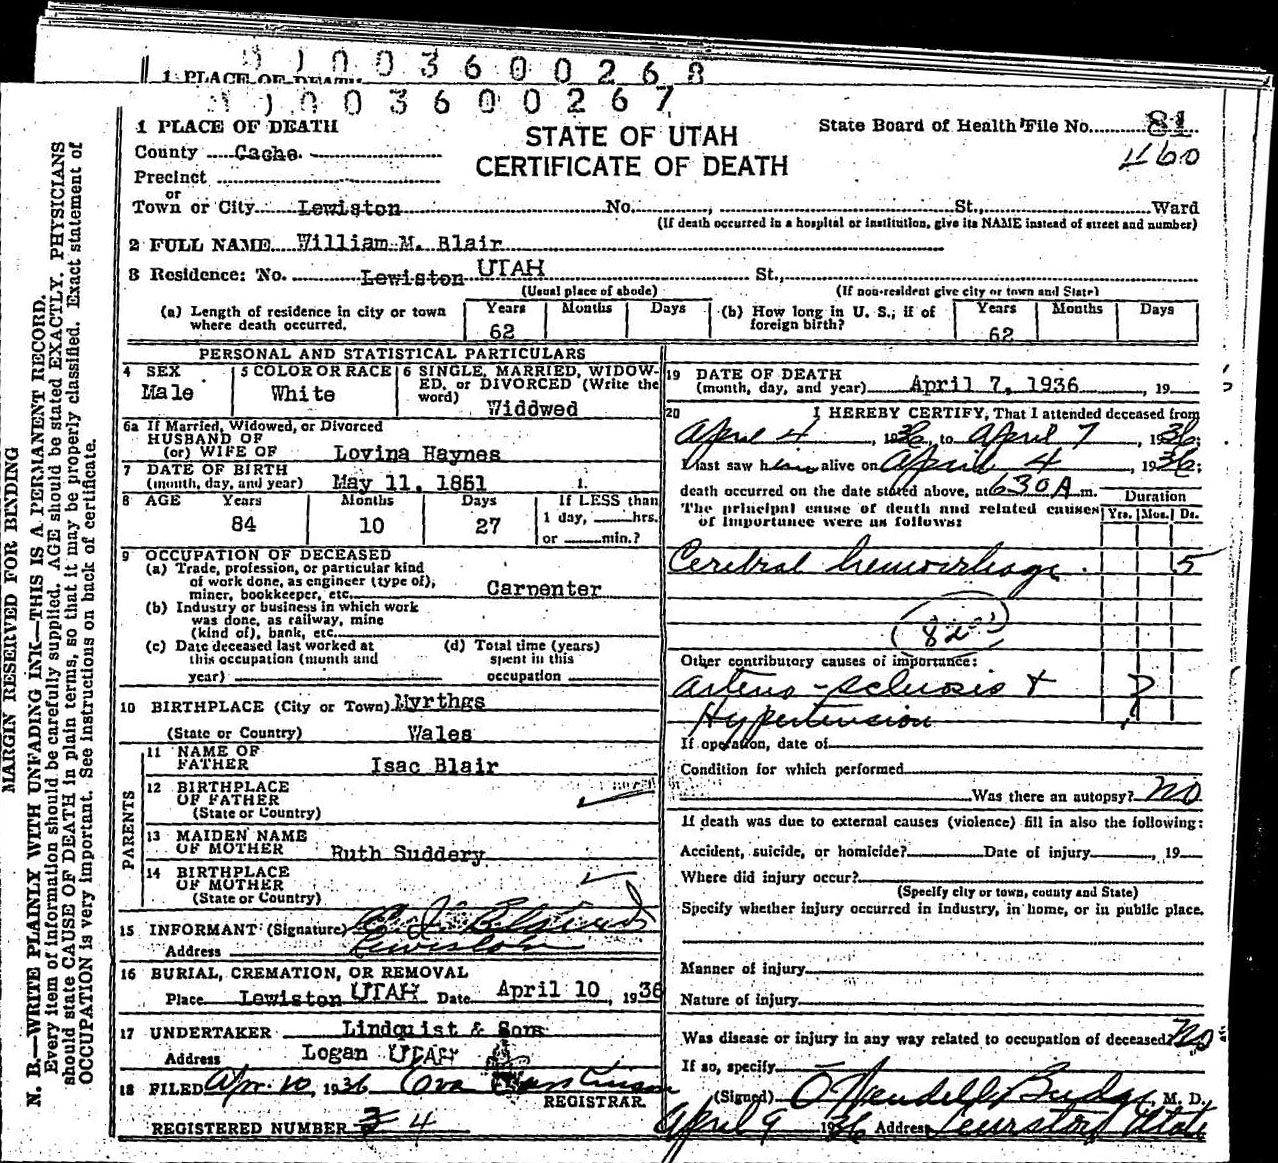 0 1 0 0 3 6 0 0 2 6 8
1 PLACE OF DEATH
0 1 0 0 3 6 0 0 2 6 7
1 PLACE OF DEATH
STATE OF UTAH
CERTIFICATE OF DEATH
State Board of Health File No. 81
460
County Cache
Precinct
or
Town or City Lewiston No. St., Ward
(If death occurred in a hospital or institution, give its NAME instead of street and number)
2 FULL NAME William M. Blair
3 Residence: No. Lewiston UTAH St.,
(Usual place of abode) (If non-resident give city or town and State)
(a) Length of residence in city or town where death occurred. Years 62 Months Days (b) How long in U. S., if of foreign birth? Years 62 Months Days
PERSONAL AND STATISTICAL PARTICULARS
4 SEX Male
5 COLOR OR RACE White
6 SINGLE, MARRIED, WIDOWED, or DIVORCED (Write the word) Widdwed
6a If Married, Widowed, or Divorced
HUSBAND OF
(or) WIFE OF Lovina Haynes
7 DATE OF BIRTH
(month, day, and year) May 11, 1851 1.
8 AGE Years 84 Months 10 Days 27 If LESS than
1 day, hrs.
or min.?
9 OCCUPATION OF DECEASED
(a) Trade, profession, or particular kind
of work done, as engineer (type of),
miner, bookkeeper, etc. Carpenter
(b) Industry or business in which work
was done, as railway, mine
(kind of), bank, etc.
(c) Date deceased last worked at
this occupation (month and
year)
(d) Total time (years)
spent in this
occupation
10 BIRTHPLACE (City or Town) Myrthgs
(State or Country) Wales
PARENTS
11 NAME OF
FATHER Isac Blair
12 BIRTHPLACE
OF FATHER
(State or Country)
13 MAIDEN NAME
OF MOTHER Ruth Suddery
14 BIRTHPLACE
OF MOTHER
(State or Country)
15 INFORMANT (Signature)
Address Lewiston
16 BURIAL, CREMATION, OR REMOVAL
Place Lewiston UTAH Date April 10, 1936
17 UNDERTAKER Lindquist & Sons
Address Logan UTAH
18 FILED Apr. 10, 1936 Ova
REGISTRAR
REGISTERED NUMBER 3 4
19 DATE OF DEATH
(month, day, and year) April 7, 1936, 19
20 I HEREBY CERTIFY, That I attended deceased from
April 4, 1936, to April 7, 1936;
I last saw him alive on April 4, 1936;
death occurred on the date stated above, at 630 A m.
Duration
The principal cause of death and related causes
of importance were as follows:
Yrs. Mos. Ds.
Cerebral hemorrhage. 5
82
Other contributory causes of importance:
Arterio-sclerosis + ?
Hypertension
If operation, date of
Condition for which performed
Was there an autopsy? No
If death was due to external causes (violence) fill in also the following:
Accident, suicide, or homicide? Date of injury, 19
Where did injury occur?
(Specify city or town, county and State)
Specify whether injury occurred in industry, in home, or in public place.
Manner of injury
Nature of injury
Was disease or injury in any way related to occupation of deceased? No
If so, specify
(Signed) O Wendell Budge, M. D.
April 9 1936 Address Lewiston Utah
MARGIN RESERVED FOR BINDING
N. B.—WRITE PLAINLY WITH UNFADING INK—THIS IS A PERMANENT RECORD.
Every item of information should be carefully supplied. AGE should be stated EXACTLY. PHYSICIANS
should state CAUSE OF DEATH in plain terms, so that it may be properly classified. Exact statement of
OCCUPATION is very important. See instructions on back of certificate.